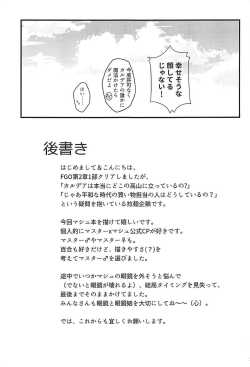 幸せそうな
顔してる
じゃない!
今度苗可なく
カルデアの誰かに
魔活かけたら
ダメだよ
後書き
はじめまして&こんにちは、
FGO第2章1部クリアしましたが、
「カルデアは本当にどこの高山に立っているの?」
「じゃあ平和な時代の買い物担当の人はどうしているの?」
という疑問を抱いている拉麺企鵝です。
今回マシュ本を描けて嬉しいです。
個人的にマスターxマシュ公式CPが好きです。
マスター♂やマスター♀も。
百合も好きだけど、描やすさ(?)を
考えてマスター♂を選びました。
途中でいつかマシュの眼鏡を外そうと悩んで
(でないと眼鏡が壊れるよ)、結局タイミングを見失って、
最後までそのままかけてました。
みんなさんも眼鏡と眼鏡娘を大切にしてね~~(心)。
では、これからも宜しくお願いします。